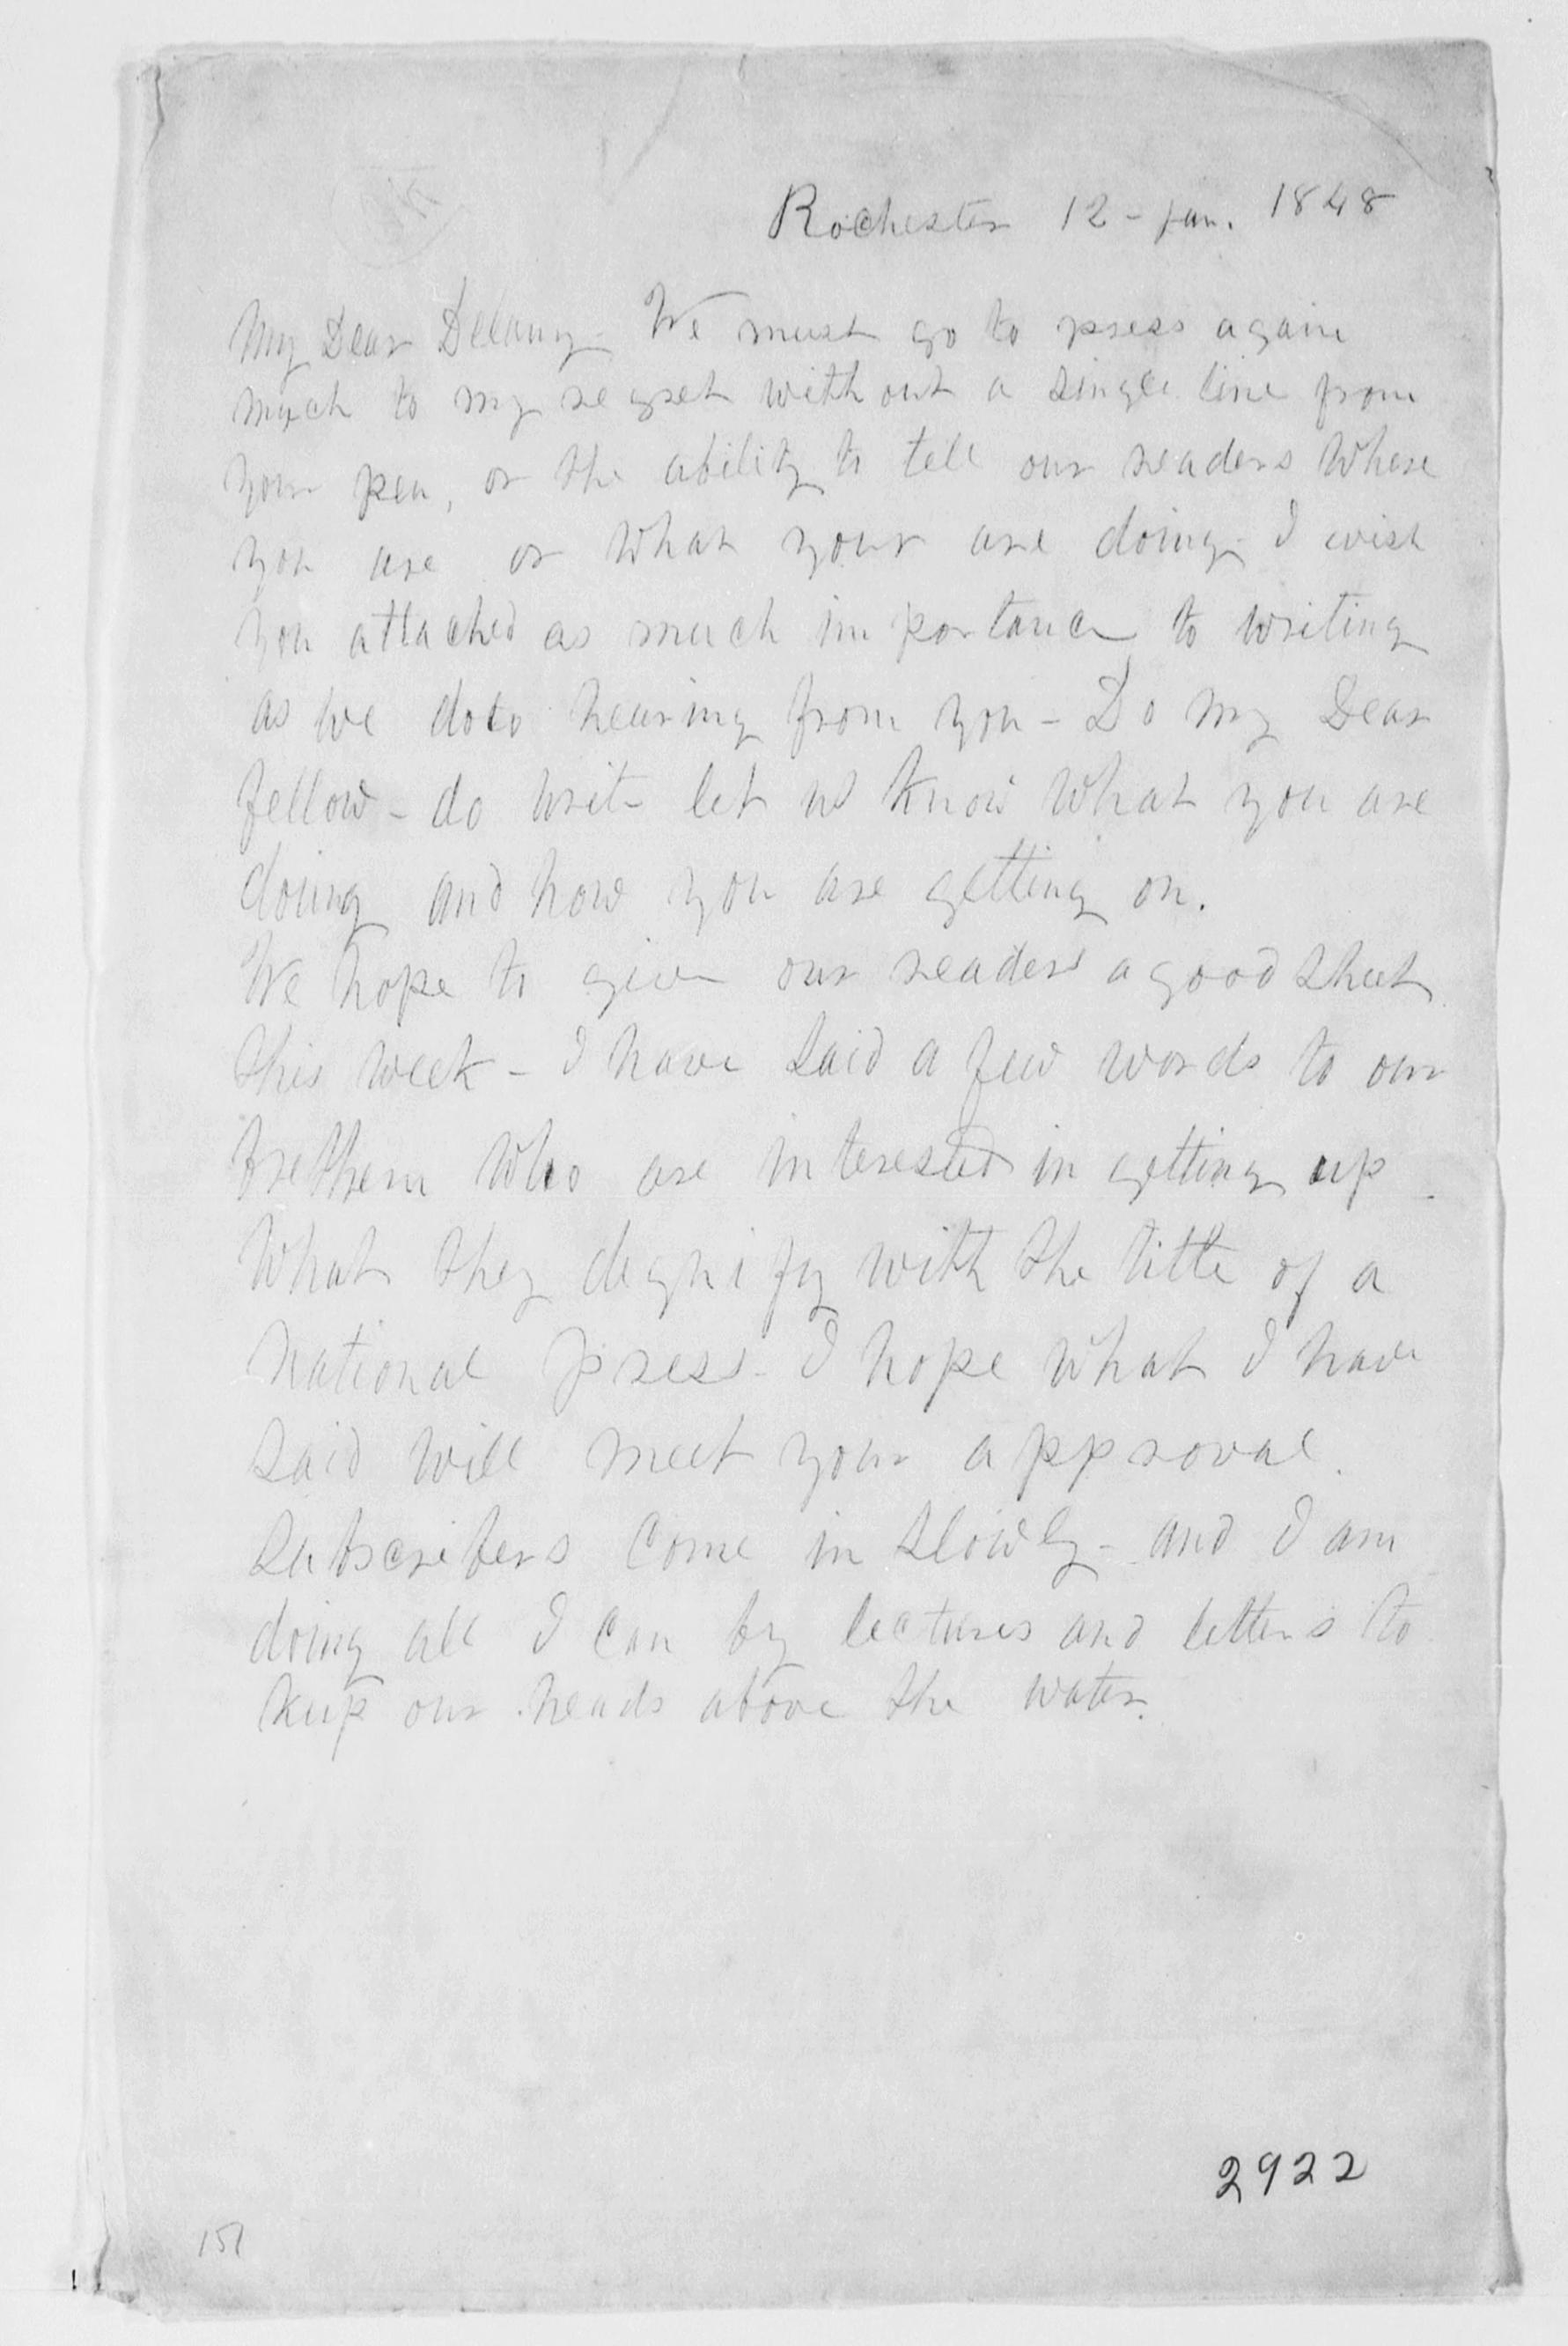 Rochester 12 - Jan. 1848
My Dear Delany - We must go to press again
much to my regret without a single line from
your pen, or the ability to tell our readers where
you are or what your are doing - I wish
you attached as much importance to writing
as we do to hearing from you - Do my Dear
fellow - do write let us know what you are
doing and how you are getting on.
We hope to give our readers a good sheet
this week - I have said a few words to our
brethern who are interested in getting up
what they dignify with the title of a
national press - I hope what I have
said will meet your approval.
Subscribers come in slowly - and I am
doing all I can by lectures and letters to
keep our heads above the water.
2922
151